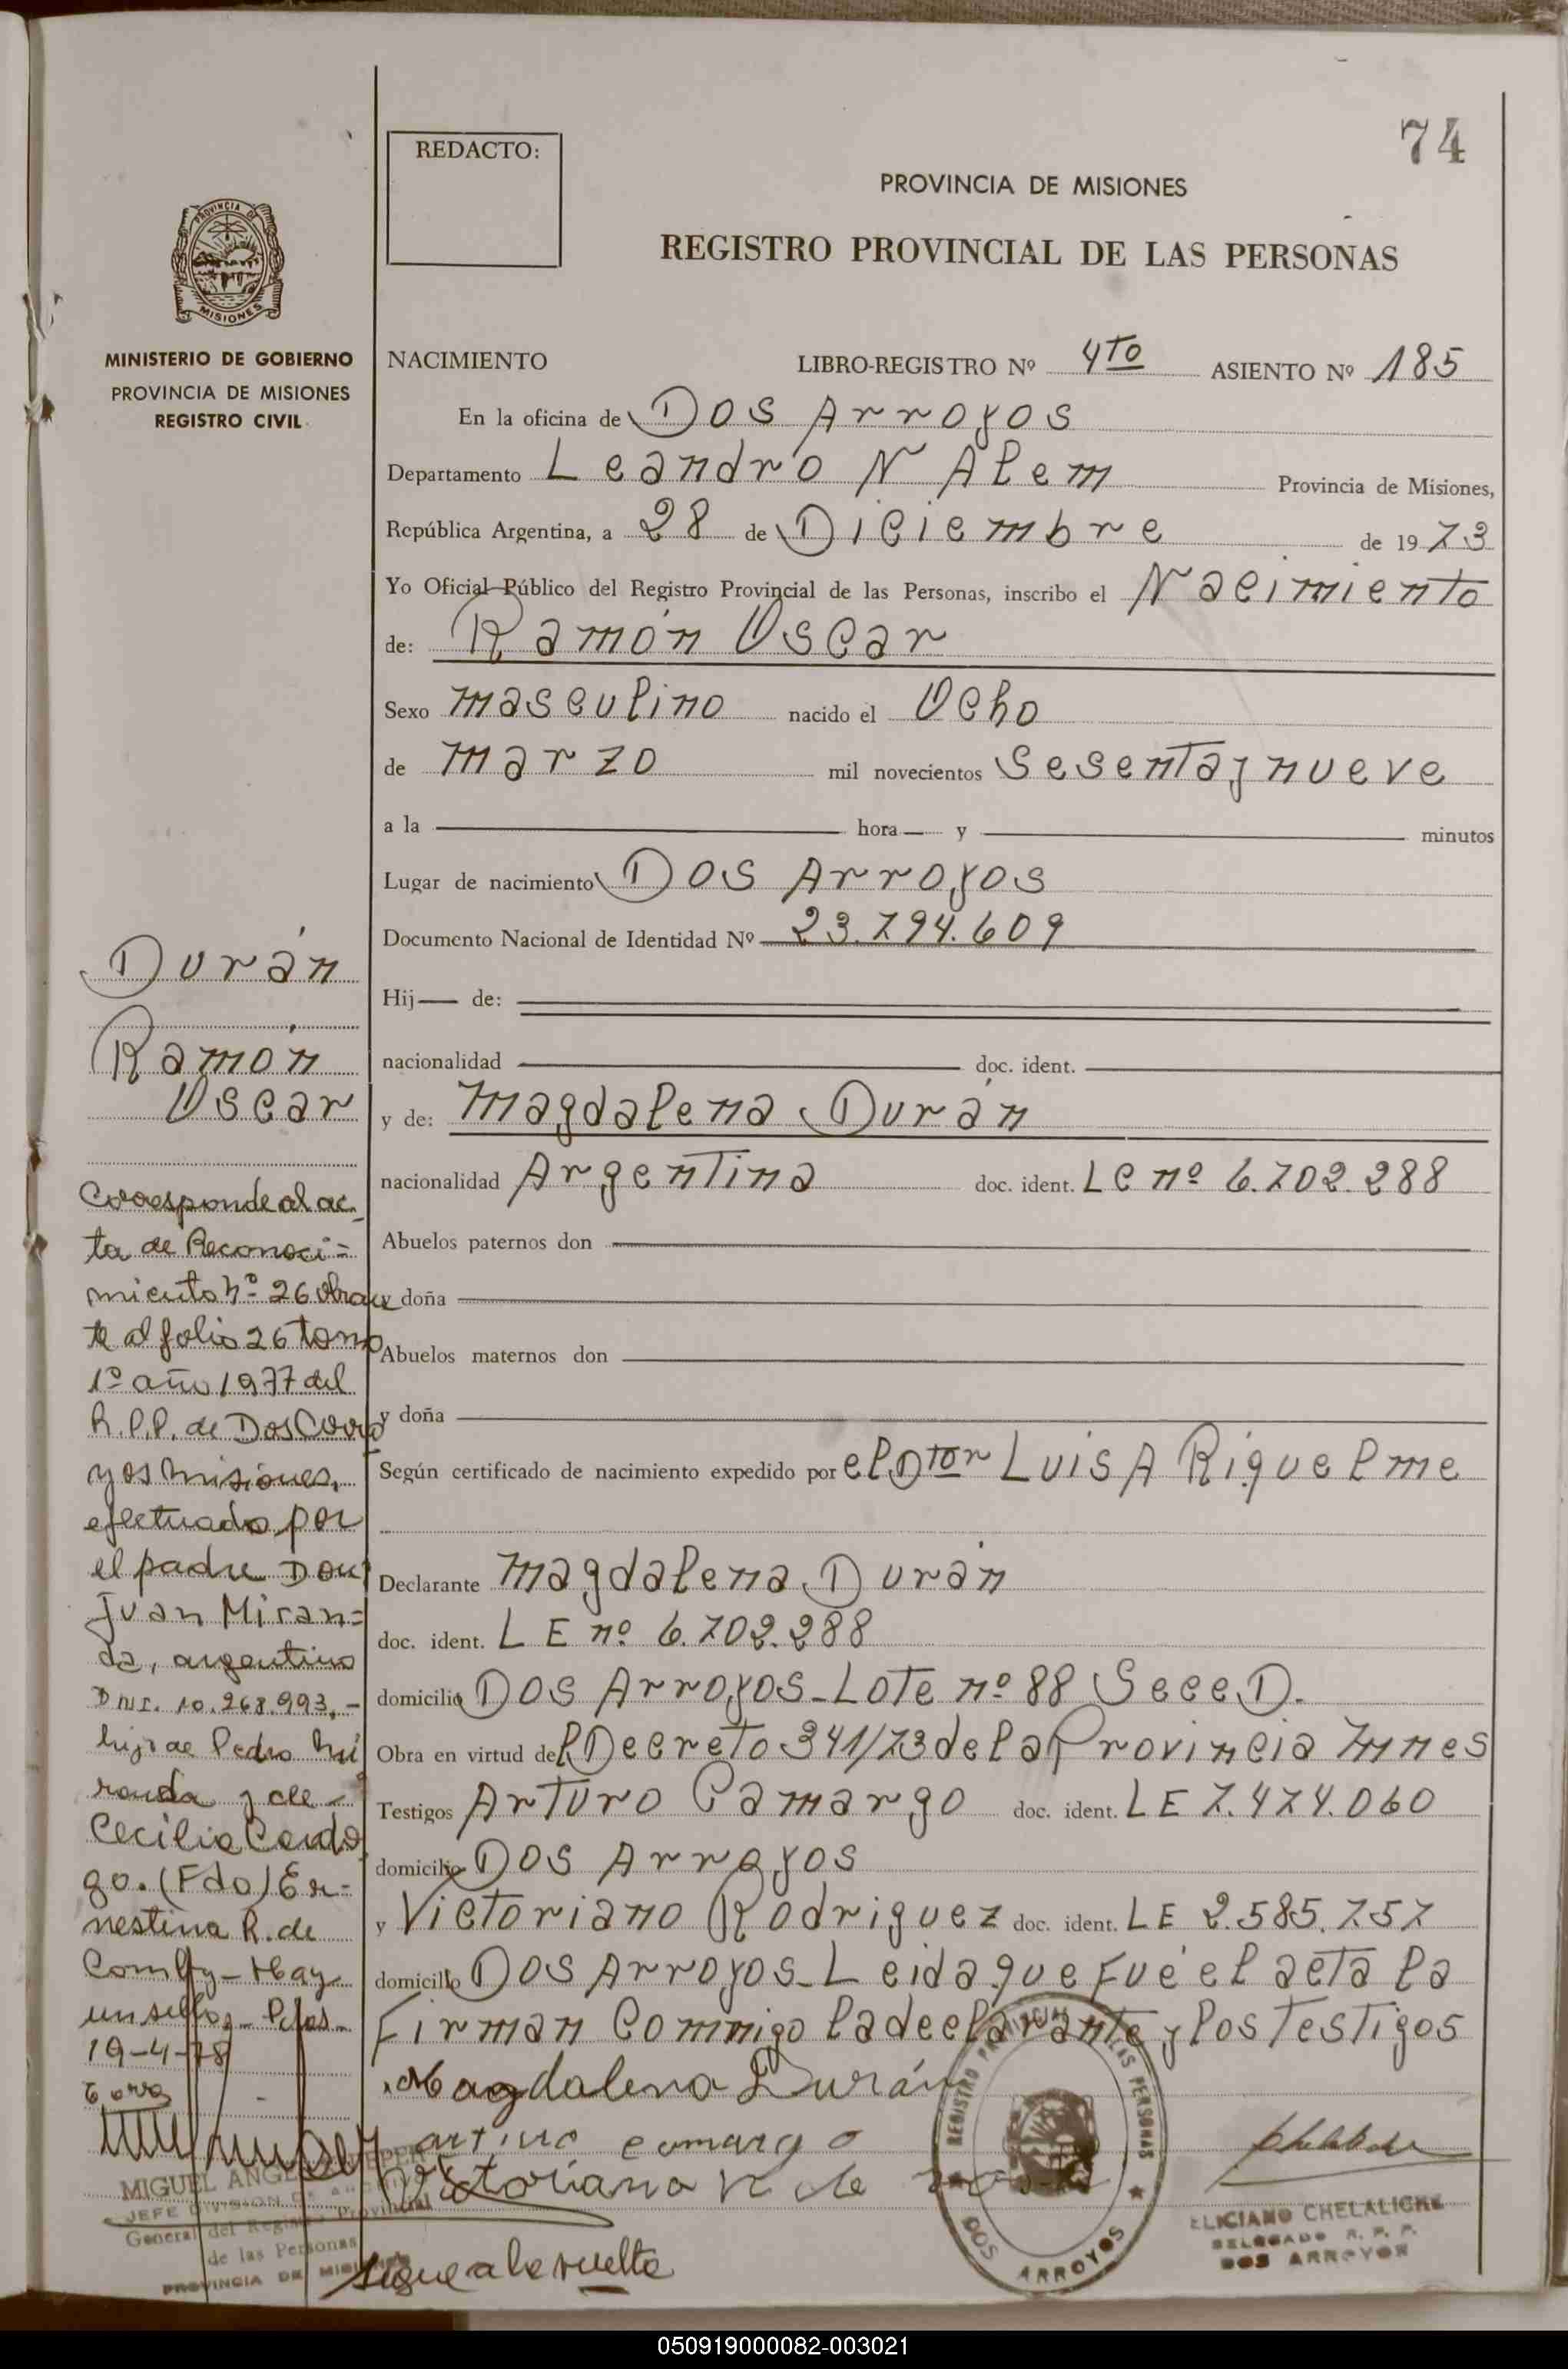 74
REDACTO:
PROVINCIA DE MISIONES
REGISTRO PROVINCIAL DE LAS PERSONAS
PROVINCIA DE
MISIONES
MINISTERIO DE GOBIERNO
PROVINCIA DE MISIONES
REGISTRO CIVIL
NACIMIENTO LIBRO-REGISTRO Nº 4to ASIENTO Nº 185
En la oficina de Dos Arroyos
Departamento Leandro N Alem Provincia de Misiones,
República Argentina, a 28 de Diciembre de 1973
Yo Oficial Público del Registro Provincial de las Personas, inscribo el Nacimiento
de: Ramón Oscar
Sexo masculino nacido el Ocho
de marzo mil novecientos Sesenta y nueve
a la hora y minutos
Lugar de nacimiento Dos Arroyos
Documento Nacional de Identidad Nº 23.794.609
Hij de:
nacionalidad doc. ident.
y de: Magdalena Durán
nacionalidad Argentina doc. ident. LC nº 6.702.288
Abuelos paternos don
y doña
Abuelos maternos don
y doña
Según certificado de nacimiento expedido por el Dtor Luis A Riquelme
Declarante Magdalena Durán
doc. ident. L E nº 6.702.288
domicilio Dos Arroyos-Lote nº 88 Secc D.
Obra en virtud del Decreto 341/73 de la Provincia Mnes
Testigos Arturo Camargo doc. ident. LE 7.474.060
domicilio Dos Arroyos
y Victoriano Rodriguez doc. ident. LE 2.585.757
domicilio Dos Arroyos-Leida que fué el acta la
Firman Commigo la declarante y los Testigos
Magdalena Durán
arturo camargo
Sigue a la vuelta
Durán
Ramón
Oscar
Corresponde al ac-
ta de Reconoci=
miento nº 26 obran
te al folio 26 tomo
1º año 1977 del
R.P.P. de Dos Arro
yos Misiones,
efectuado por
el padre Don
Juan Miran=
da, argentino
DNI. 10.268.993,-
hijo de Pedro Mi
randa y de
Cecilia Cardo
zo. (Fdo) Er-
nestina R. de
Hay
un sello,- Pdas.
19-4-78
MIGUEL ANGEL
JEFE DIVISION DE
General del Registro Provincial
de las Personas
PROVINCIA DE MISIONES
REGISTRO PROVINCIAL DE LAS PERSONAS
DOS ARROYOS
ELICIANO CHELALICHE
DELEGADO R. P. P.
DOS ARROYOS
050919000082-003021